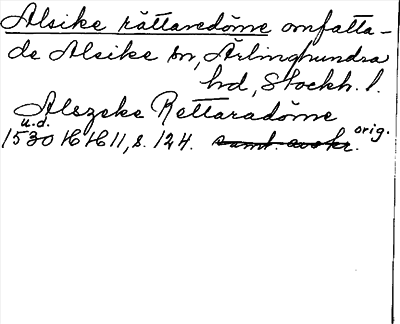 Alsike rättaredöme omfatta-
de Alsike sn, Ärlinghundra
hd, Stockh. l.
Alszeke Rettaradöme
u.d.
1530 HH 11, s. 124. samt. avskr. orig.